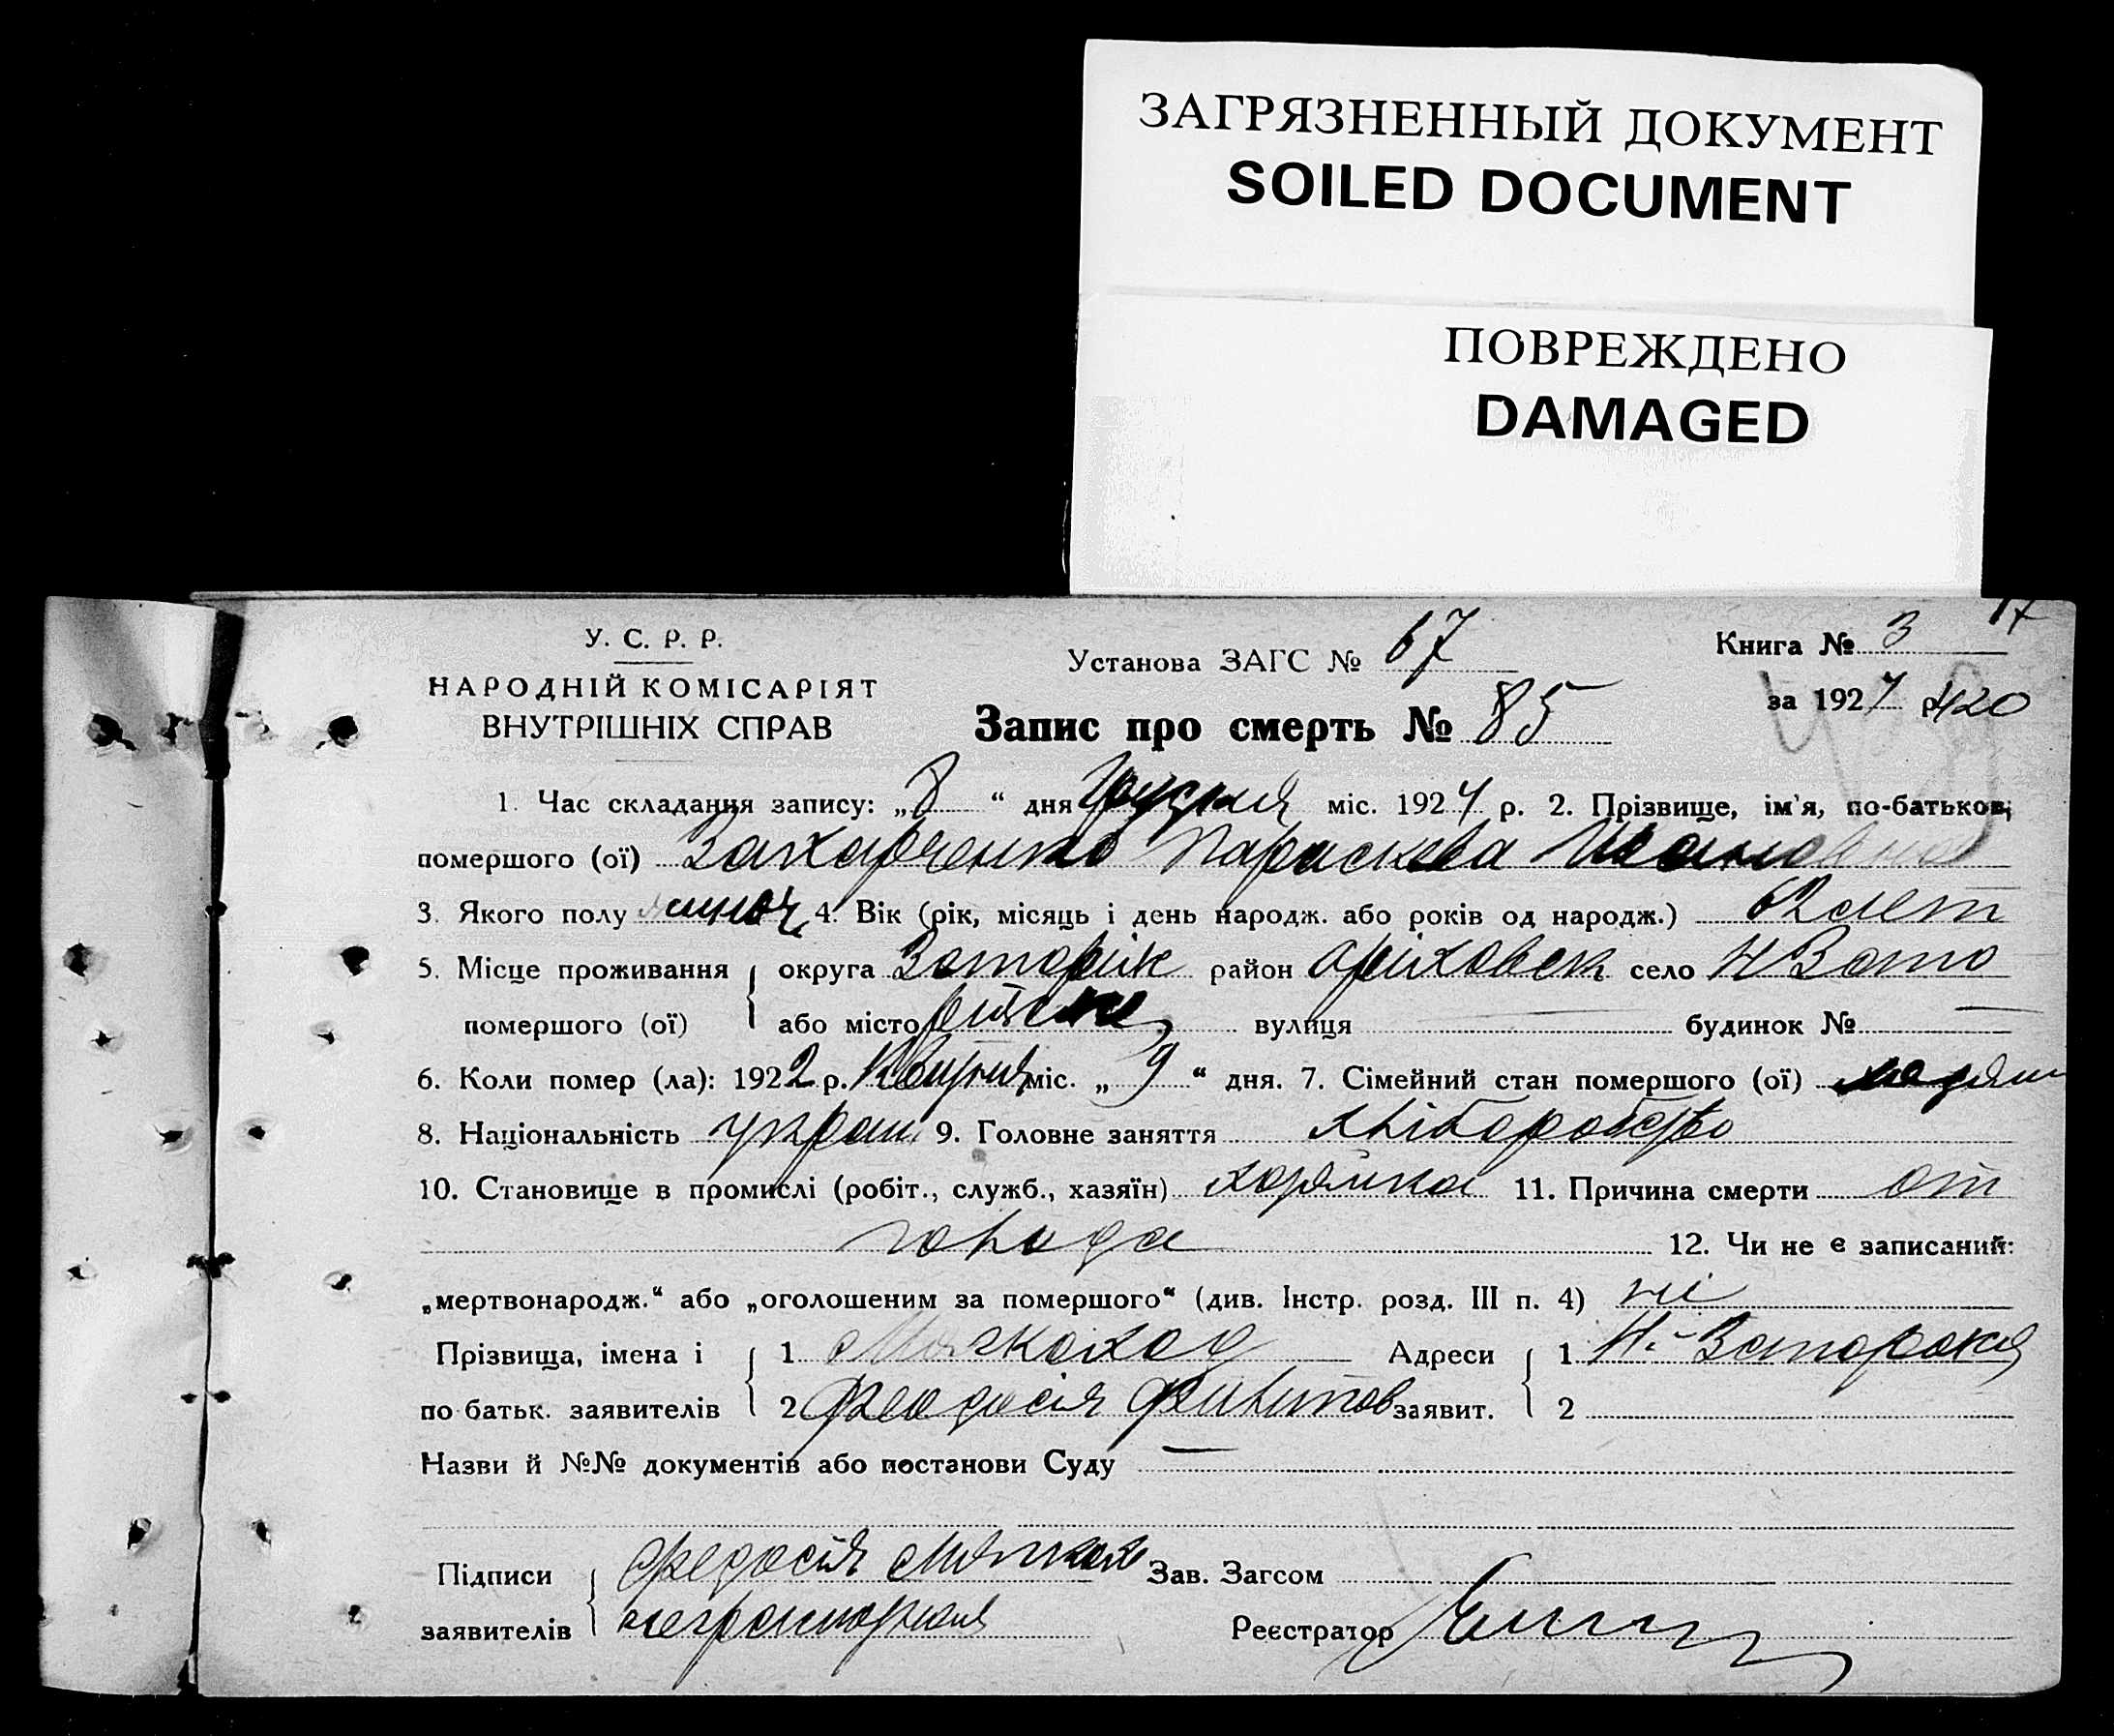 ЗАГРЯЗНЕННЫЙ ДОКУМЕНТ
SOILED DOCUMENT
ПОВРЕЖДЕНО
DAMAGED
17
У. С. Р. Р.
НАРОДНІЙ КОМІСАРІЯТ
ВНУТРІШНІХ СПРАВ
Установа ЗАГС № 67
Книга № 3
за 1927 р. 420
Запис про смерть № 85
1. Час складання запису: „8“ дня Грудня міс. 1927 р. 2. Прізвище, ім'я, по-батькові
помершого (ої) Захарченко Параскева Ивановна
3. Якого полу 4. Вік (рік, місяць і день народж. або років од народж.) 62 лет
5. Місце проживання округа Запоріж район Оріховск село Н Запо
помершого (ої) або місто ріжське вулиця — будинок № —
6. Коли помер (ла): 1922 р. Квітня міс. „9“ дня. 7. Сімейний стан помершого (ої)
8. Національність украин 9. Головне заняття хліборобство
10. Становище в промислі (робіт., служб., хазяїн) хозяйка 11. Причина смерти от
голода 12. Чи не є записаний:
„мертвонародж.“ або „оголошеним за помершого“ (див. Інстр. розд. III п. 4) ні
Прізвища, імена і 1 Мягкоход Адреси 1 Н.-Запорожя
по батьк. заявителів 2 Феодосія Филипов заявит. 2
Назви й №№ документів або постанови Суду —
Підписи Федосія Мягкох Зав. Загсом
заявителів неграмотная Реєстратор